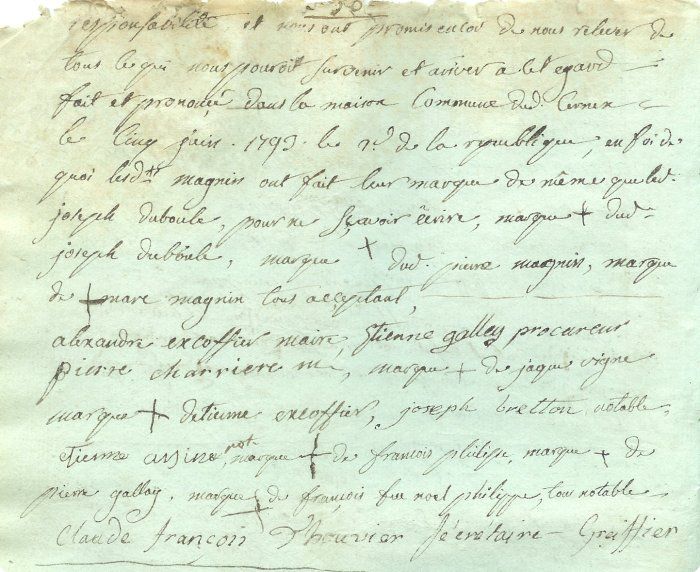 50
responsabilité et nous ont promis en soi de nous relever de
tous ce qui nous pouroit survenir et ariver a cet egard
fait et prononcé dans la maison Commune dud. Cernex
le Cinq juin 1793 le 2d. de la republique, en foi de
quoi lesdtts magnin ont fait leur marque de même que led.
joseph duboule, pour ne sçavoir écrire, marque + dud.
joseph duboule, marque + dud. pierre magnin, marque
de + marc magnin tous acceptant,
alexandre excoffier maire, Etienne gallay procureur
pierre charriere m, marque + de jaque vigne
marque + detienne excoffier, joseph bretton notable,
etienne not. marque + de françois philipe, marque + de
pierre gallay, marque + de françois feu noel philippe, tous notable
Claude françois Thouvier Sécretaire - Greiffier